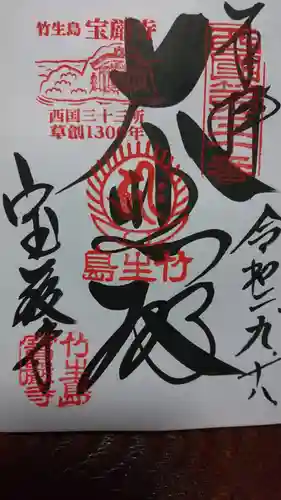 竹生島 宝厳寺
西国三十三所
草創1300年
奉拝
大悲殿
竹生島
宝厳寺
竹生島
令和二、九、十八